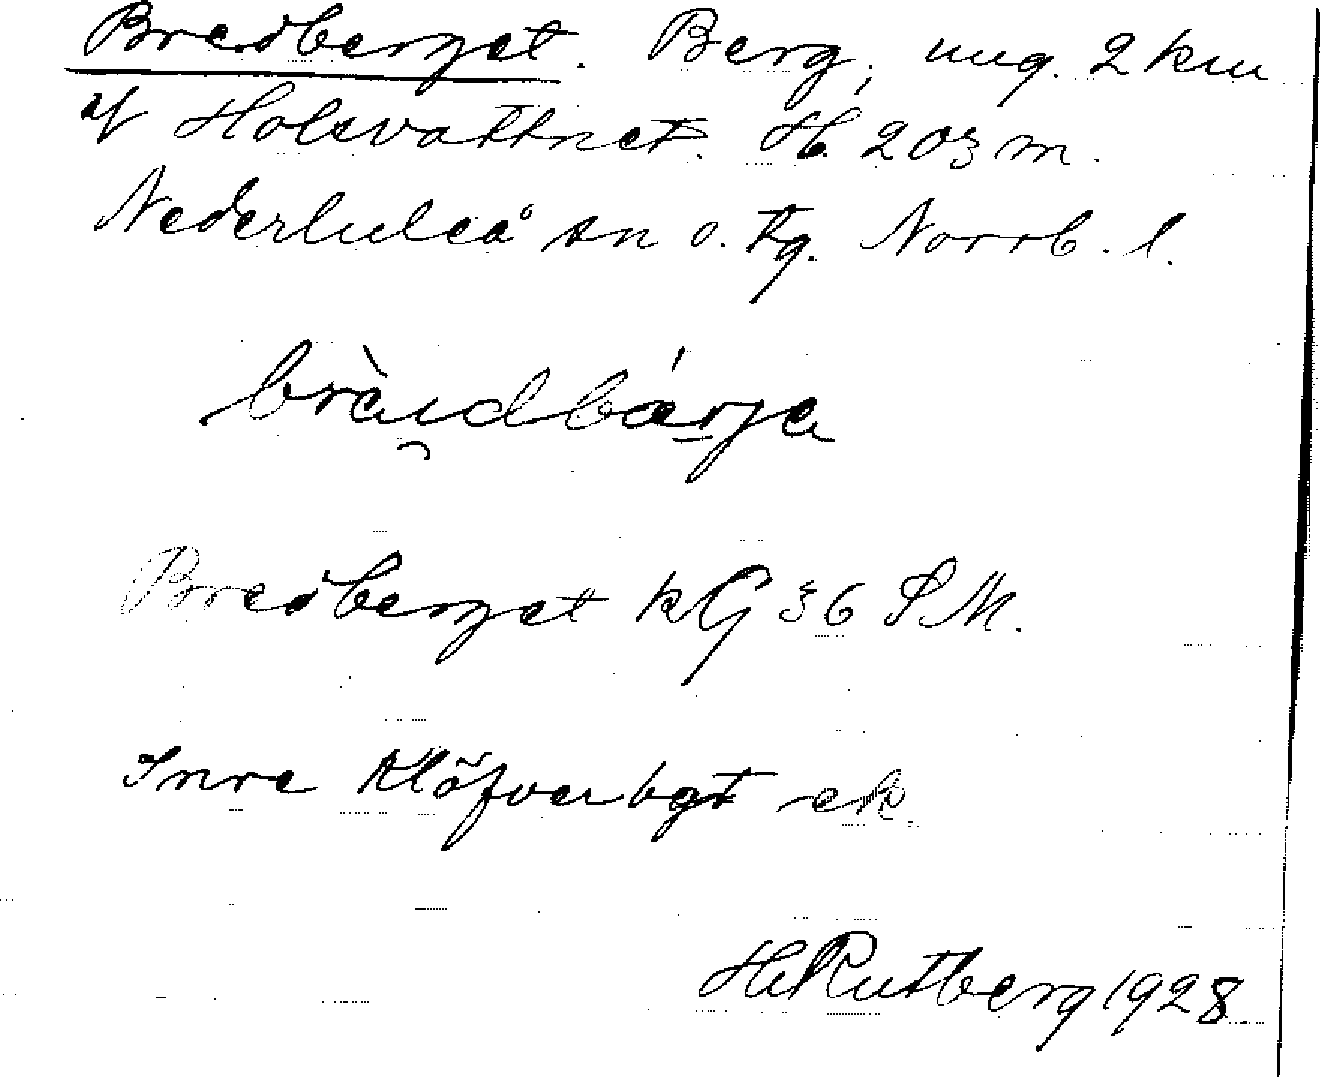 Bredberget. Berg, ung. 2 km
af Holsvattnet. H. 203 m.
Nederluleå sn o. tg. Norrb. l.
brὰi̯dbǽrja
Bredberget kG 36 SM.
Inre Klöfverbgt ek.
H Rutberg 1928